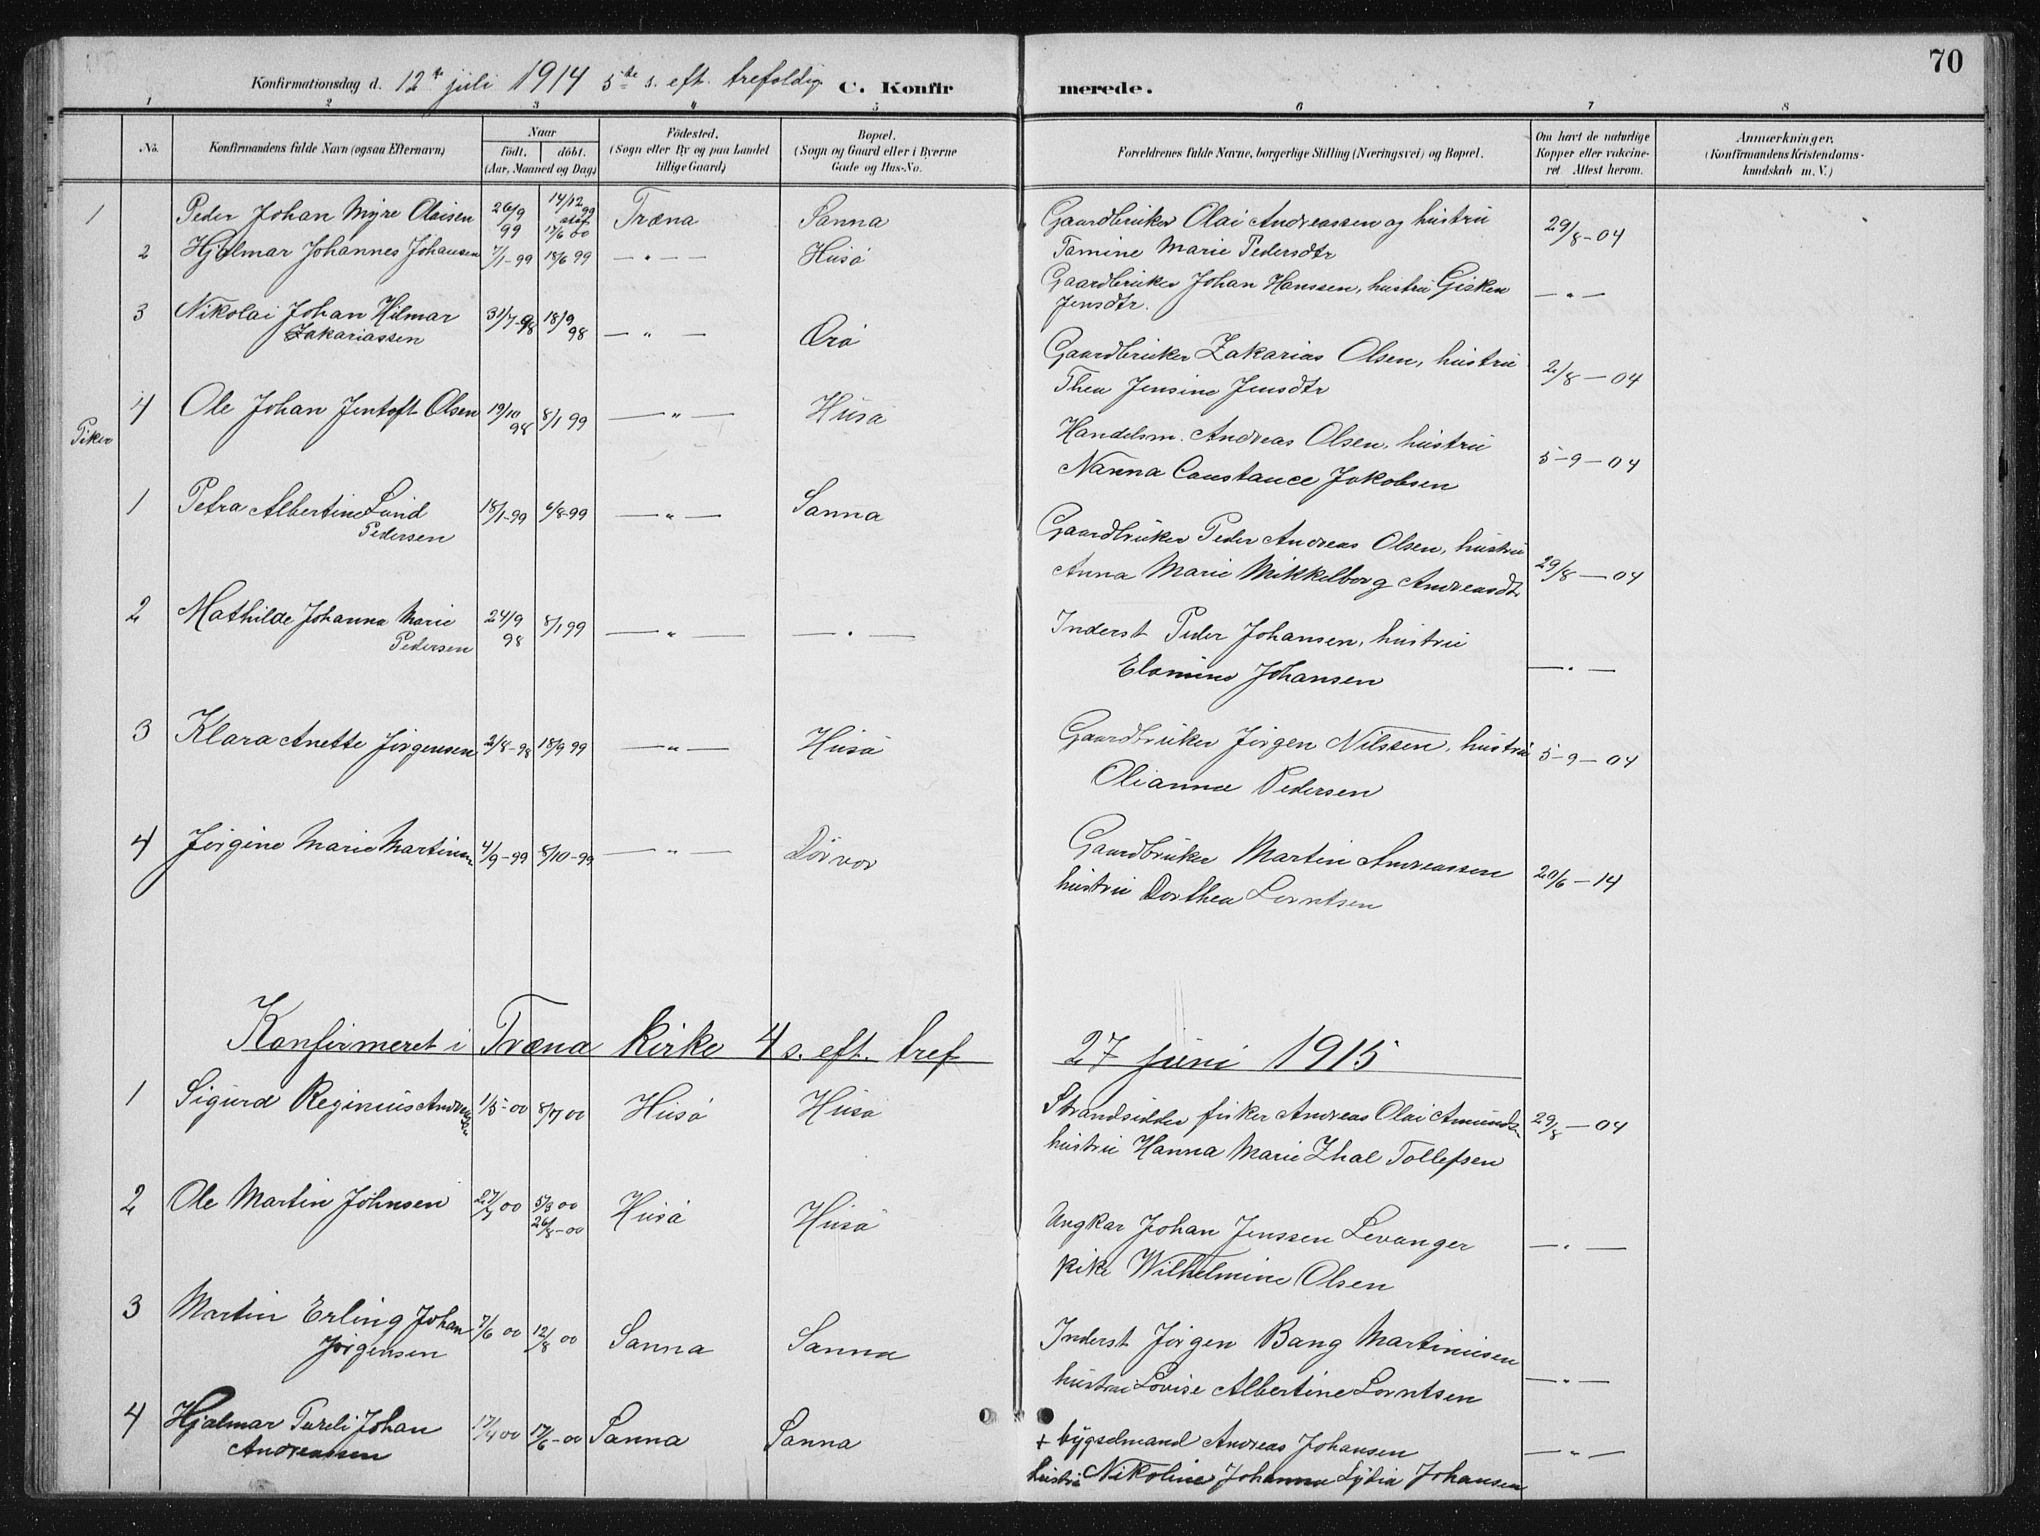 70
Konfirmationsdag d. 12te juli 1914 5te s. eft. trefoldig. C. Konfirmerede.
1 2 3 4 5 6 7 8
No. Konfirmandens fulde Navn (ogsaa Efternavn) Naar født. døbt. (Aar, Maaned og Dag) Fødested. (Sogn eller By og paa Landet tillige Gaard) Bopæl. (Sogn og Gaard eller i Byerne Gade og Hus-No. Forældrenes fulde Navne, borgerlige Stilling (Næringsvei) og Bopæl. Om havt de naturlige Kopper eller vakcineret. Attest herom. Anmærkninger. (Konfirmandens Kristendomskundskab m. V.)
1 Peder Johan Myre Olaisen 26/9 99 14/12 99 stf 17/6 00 Træna Sanna Gaardbruker Olai Andreassen og hustru Tamine Marie Pedersdtr 29/8-04
2 Hjalmar Johannes Johansen 7/1-99 18/6 99 — " — Husö Gaardbruker Johan Hanssen, hustru Gisken Jensdtr. — " —
3 Nikolai Johan Hilmar Zakariassen 31/7-98 18/9 98 — " — Gaardbruker Zakarias Olsen, hustru Thea Jensine Jensdtr 2/8 — 04
4 Ole Johan Jentoft Olsen 19/10 98 8/1 99 — " — Husö Handelsm. Andreas Olsen, hustru Nanna Constance Jakobsen 5-9-04
Piker
1 Petra Albertine Lund Pedersen 18/1-99 6/8-99 — " — Sanna Gaardbruker Peder Andreas Olsen, hustru Anna Marie Mikkelborg Andreasdtr 29/8 — 04
2 Mathilde Johanna Marie Pedersen 24/9 98 8/1 99 — " — — " — Inderst Peder Johansen, hustru Elamine Johansen — " —
3 Klara Anette Jörgensen 2/8-98 18/9 99 — " — Husö Gaardbruker Jörgen Nilssen, hustru Olianna Pedersen 5-9-04
4 Jörgine Marie Martinsen 4/9-99 8/10-99 — " — Dörvær Gaardbruker Martin Andreassen hustru Dorthea Lorntsen 20/6-14
Konfirmeret i Træna kirke 4 s. eft. tref 27 juni 1915
1 Sigurd Reginius Andreassen 1/5-00 8/7 00 Husö Husö Strandsidder fisker Andreas Olai Amundsen hustru Hanna Marie Zhal Tollefsen 29/8 — 04
2 Ole Martin Johnsen 27/3 00 5/8 00 26/8-00 Husö Husö Ungkar Johan Jenssen Levanger pike Wilhelmine Olsen — " —
3 Martin Erling Johan Jörgensen 7/6 00 12/8 00 Sanna Sanna Inderst Jörgen Bang Martinusen hustru Lovise Albertine Lorntsen — " —
4 Hjalmar Pareli Johan Andreassen 17/4 00 17/6-00 Sanna Sanna + bygselmand Andreas Johansen hustru Nikoline Johanna Lydia Johansen — " —